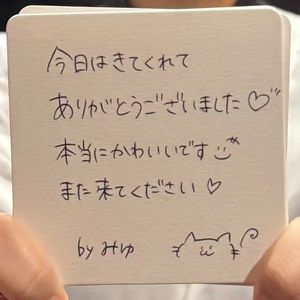 今日はきてくれて
ありがとうございました♡
本当にかわいいです
また来てください♡
by みゆ